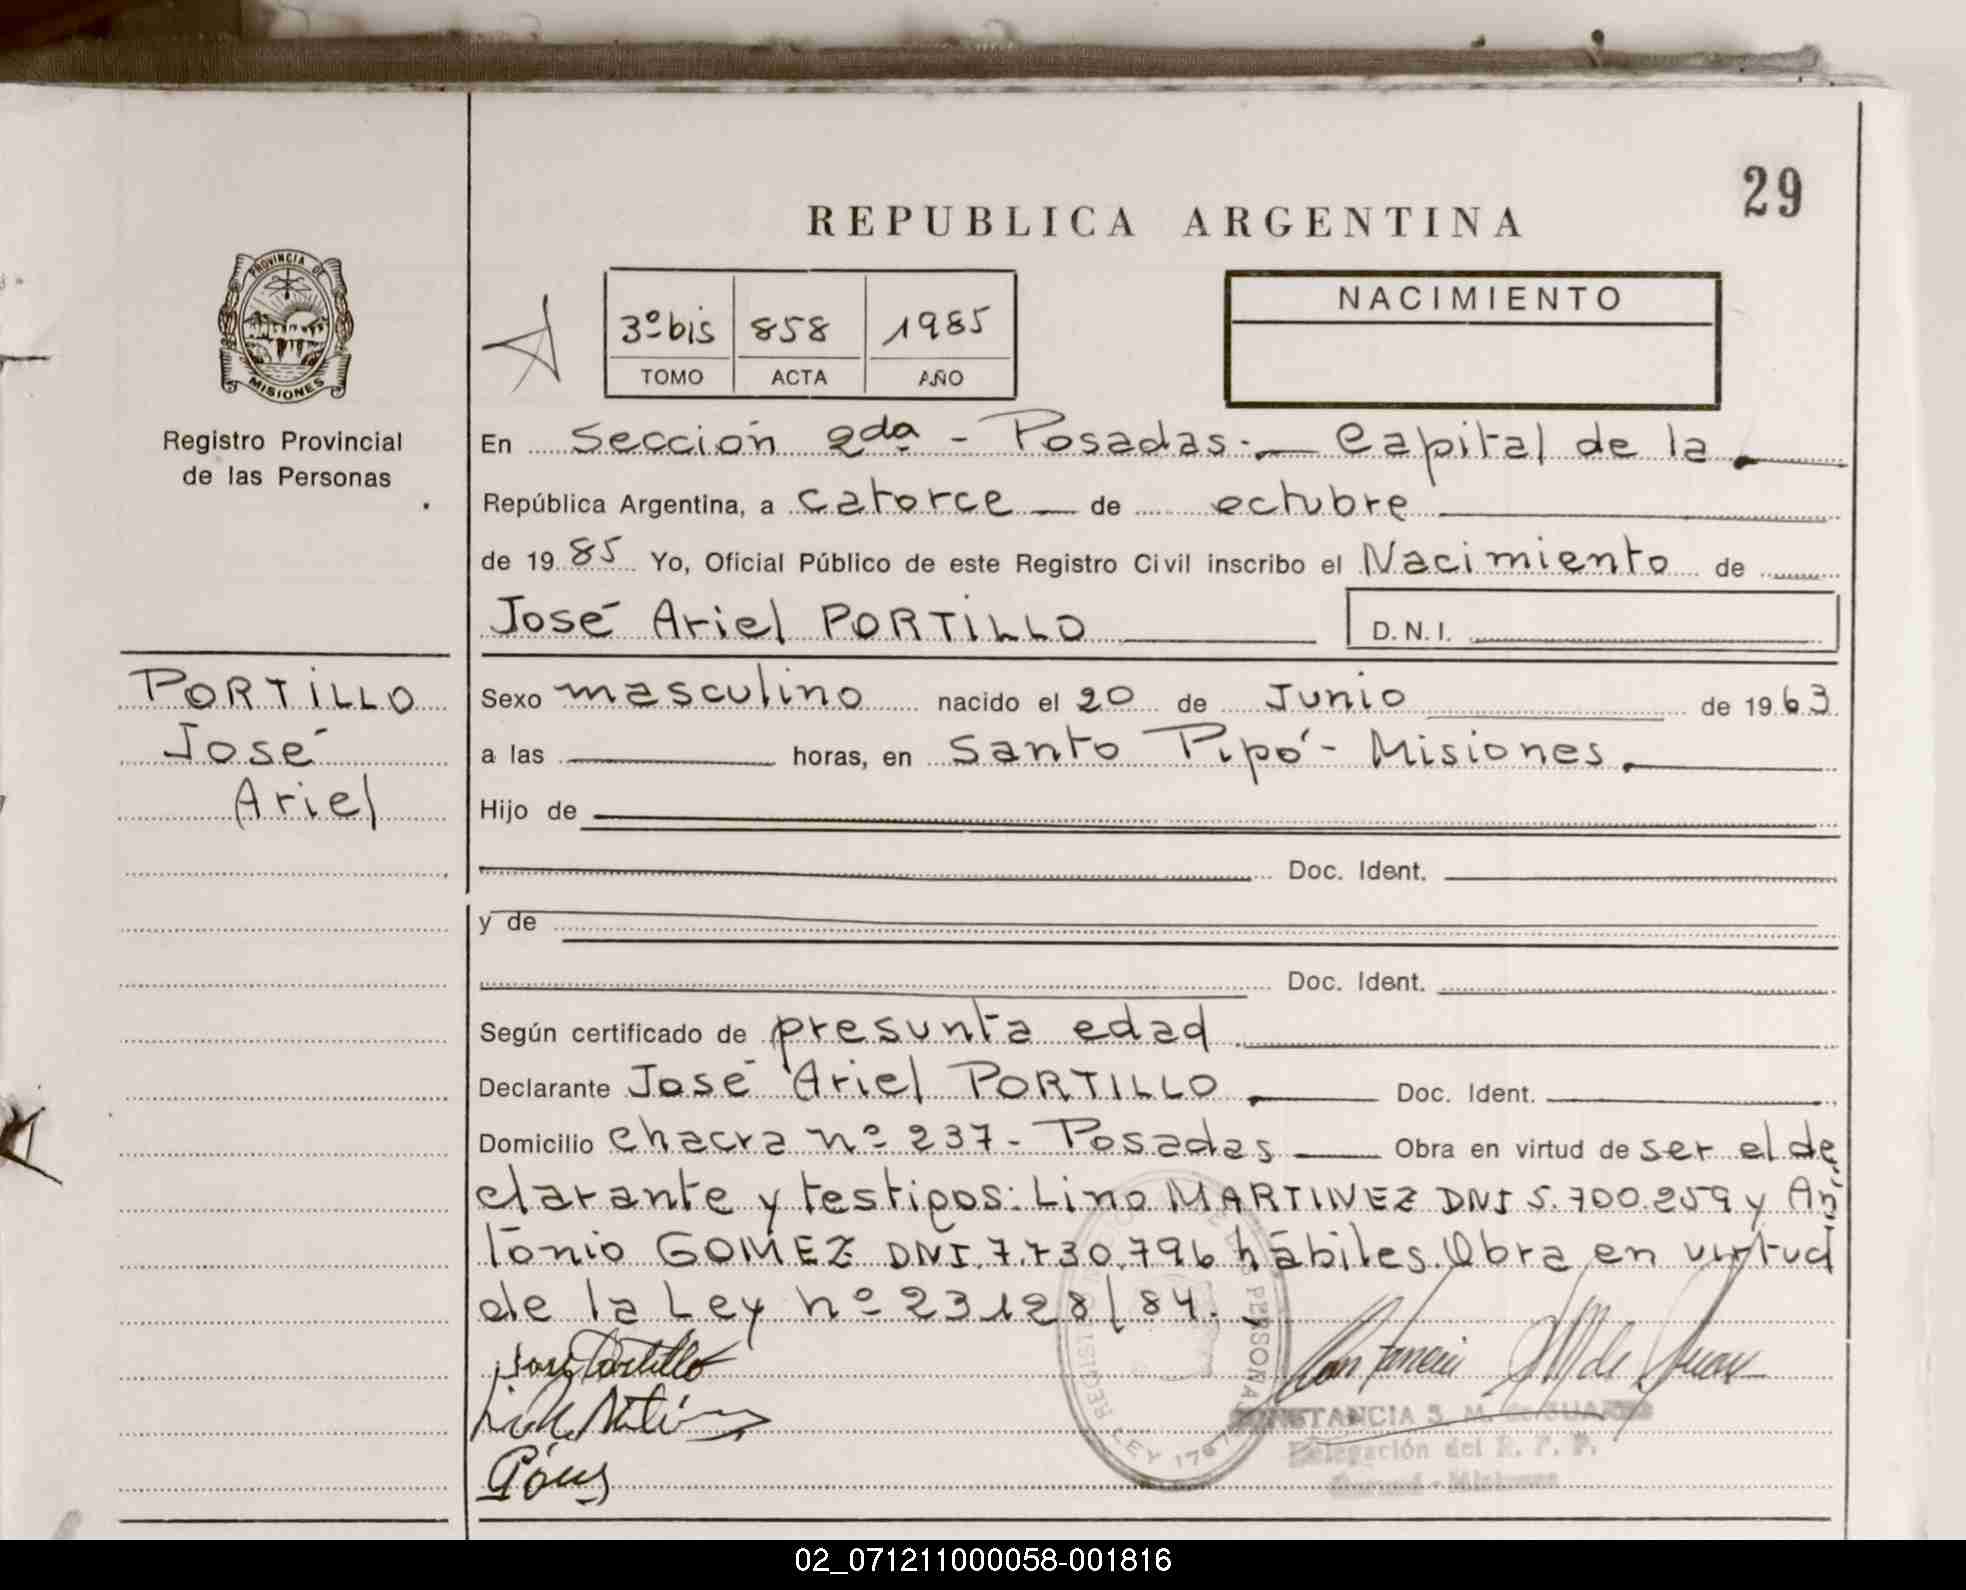 29
REPUBLICA ARGENTINA
PROVINCIA DE
MISIONES
Registro Provincial
de las Personas
3º bis 858 1985
TOMO ACTA AÑO
NACIMIENTO
En Sección 2da - Posadas.- Capital de la
República Argentina, a catorce de octubre
de 1985 Yo, Oficial Público de este Registro Civil inscribo el Nacimiento de
José Ariel PORTILLO D.N.I.
PORTILLO
José
Ariel
Sexo masculino nacido el 20 de Junio de 1963
a las horas, en Santo Pipó - Misiones.
Hijo de
Doc. Ident.
y de
Doc. Ident.
Según certificado de presunta edad
Declarante José Ariel PORTILLO Doc. Ident.
Domicilio chacra nº 237 - Posadas Obra en virtud de ser el de
clarante y testigos: Lino MARTINEZ DNI 5.700.259 y An
tonio GOMEZ DNI. 7.730.796 hábiles. Obra en virtud
de la Ley nº 23128/84.
José Portillo
CONSTANCIA S. M. de SUAREZ
Delegación del R. P. P.
02_071211000058-001816